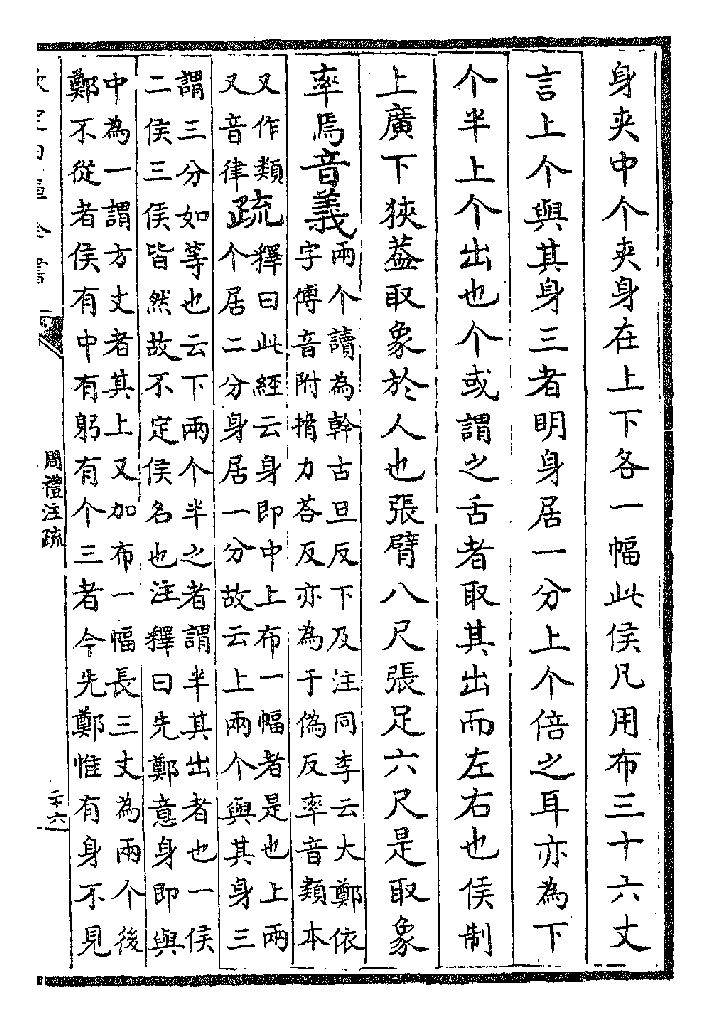 身夾中个夾身在上下各一幅此侯凡用布三十六丈
言上个與其身三者明身居一分上个倍之耳亦為下
个半上个出也个或謂之舌者取其出而左右也侯制
上廣下狹葢取象於人也張臂八尺張足六尺是取象
率焉音義兩个讀為幹古旦反下及注同李云大鄭依
字傅音附揹力荅反亦為于偽反率音類本
又作類
又音律疏釋曰此經云身即中上布一幅者是也上兩
个居二分身居一分故云上兩个與其身三
謂三分如等也云下兩个半之者謂半其出者也一侯
二侯三侯皆然故不定侯名也注釋曰先鄭意身即與
中為一謂方丈者其上又加布一幅長三丈為兩个後
鄭不從者侯有中有躬有个三者今先鄭惟有身不見
周禮注疏
二十六